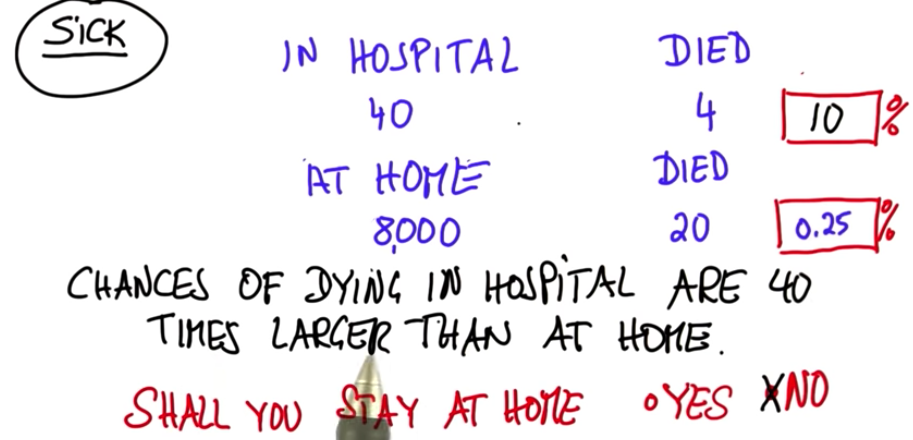 SiCK
IN HOSPITAL DIED
40 4 10 %
AT HOME DIED
8,000 20 0.25 %
CHANCES OF DYING IN HOSPITAL ARE 40
TIMES LARGER THAN AT HOME.
SHALL YOU STAY AT HOME YES XNO